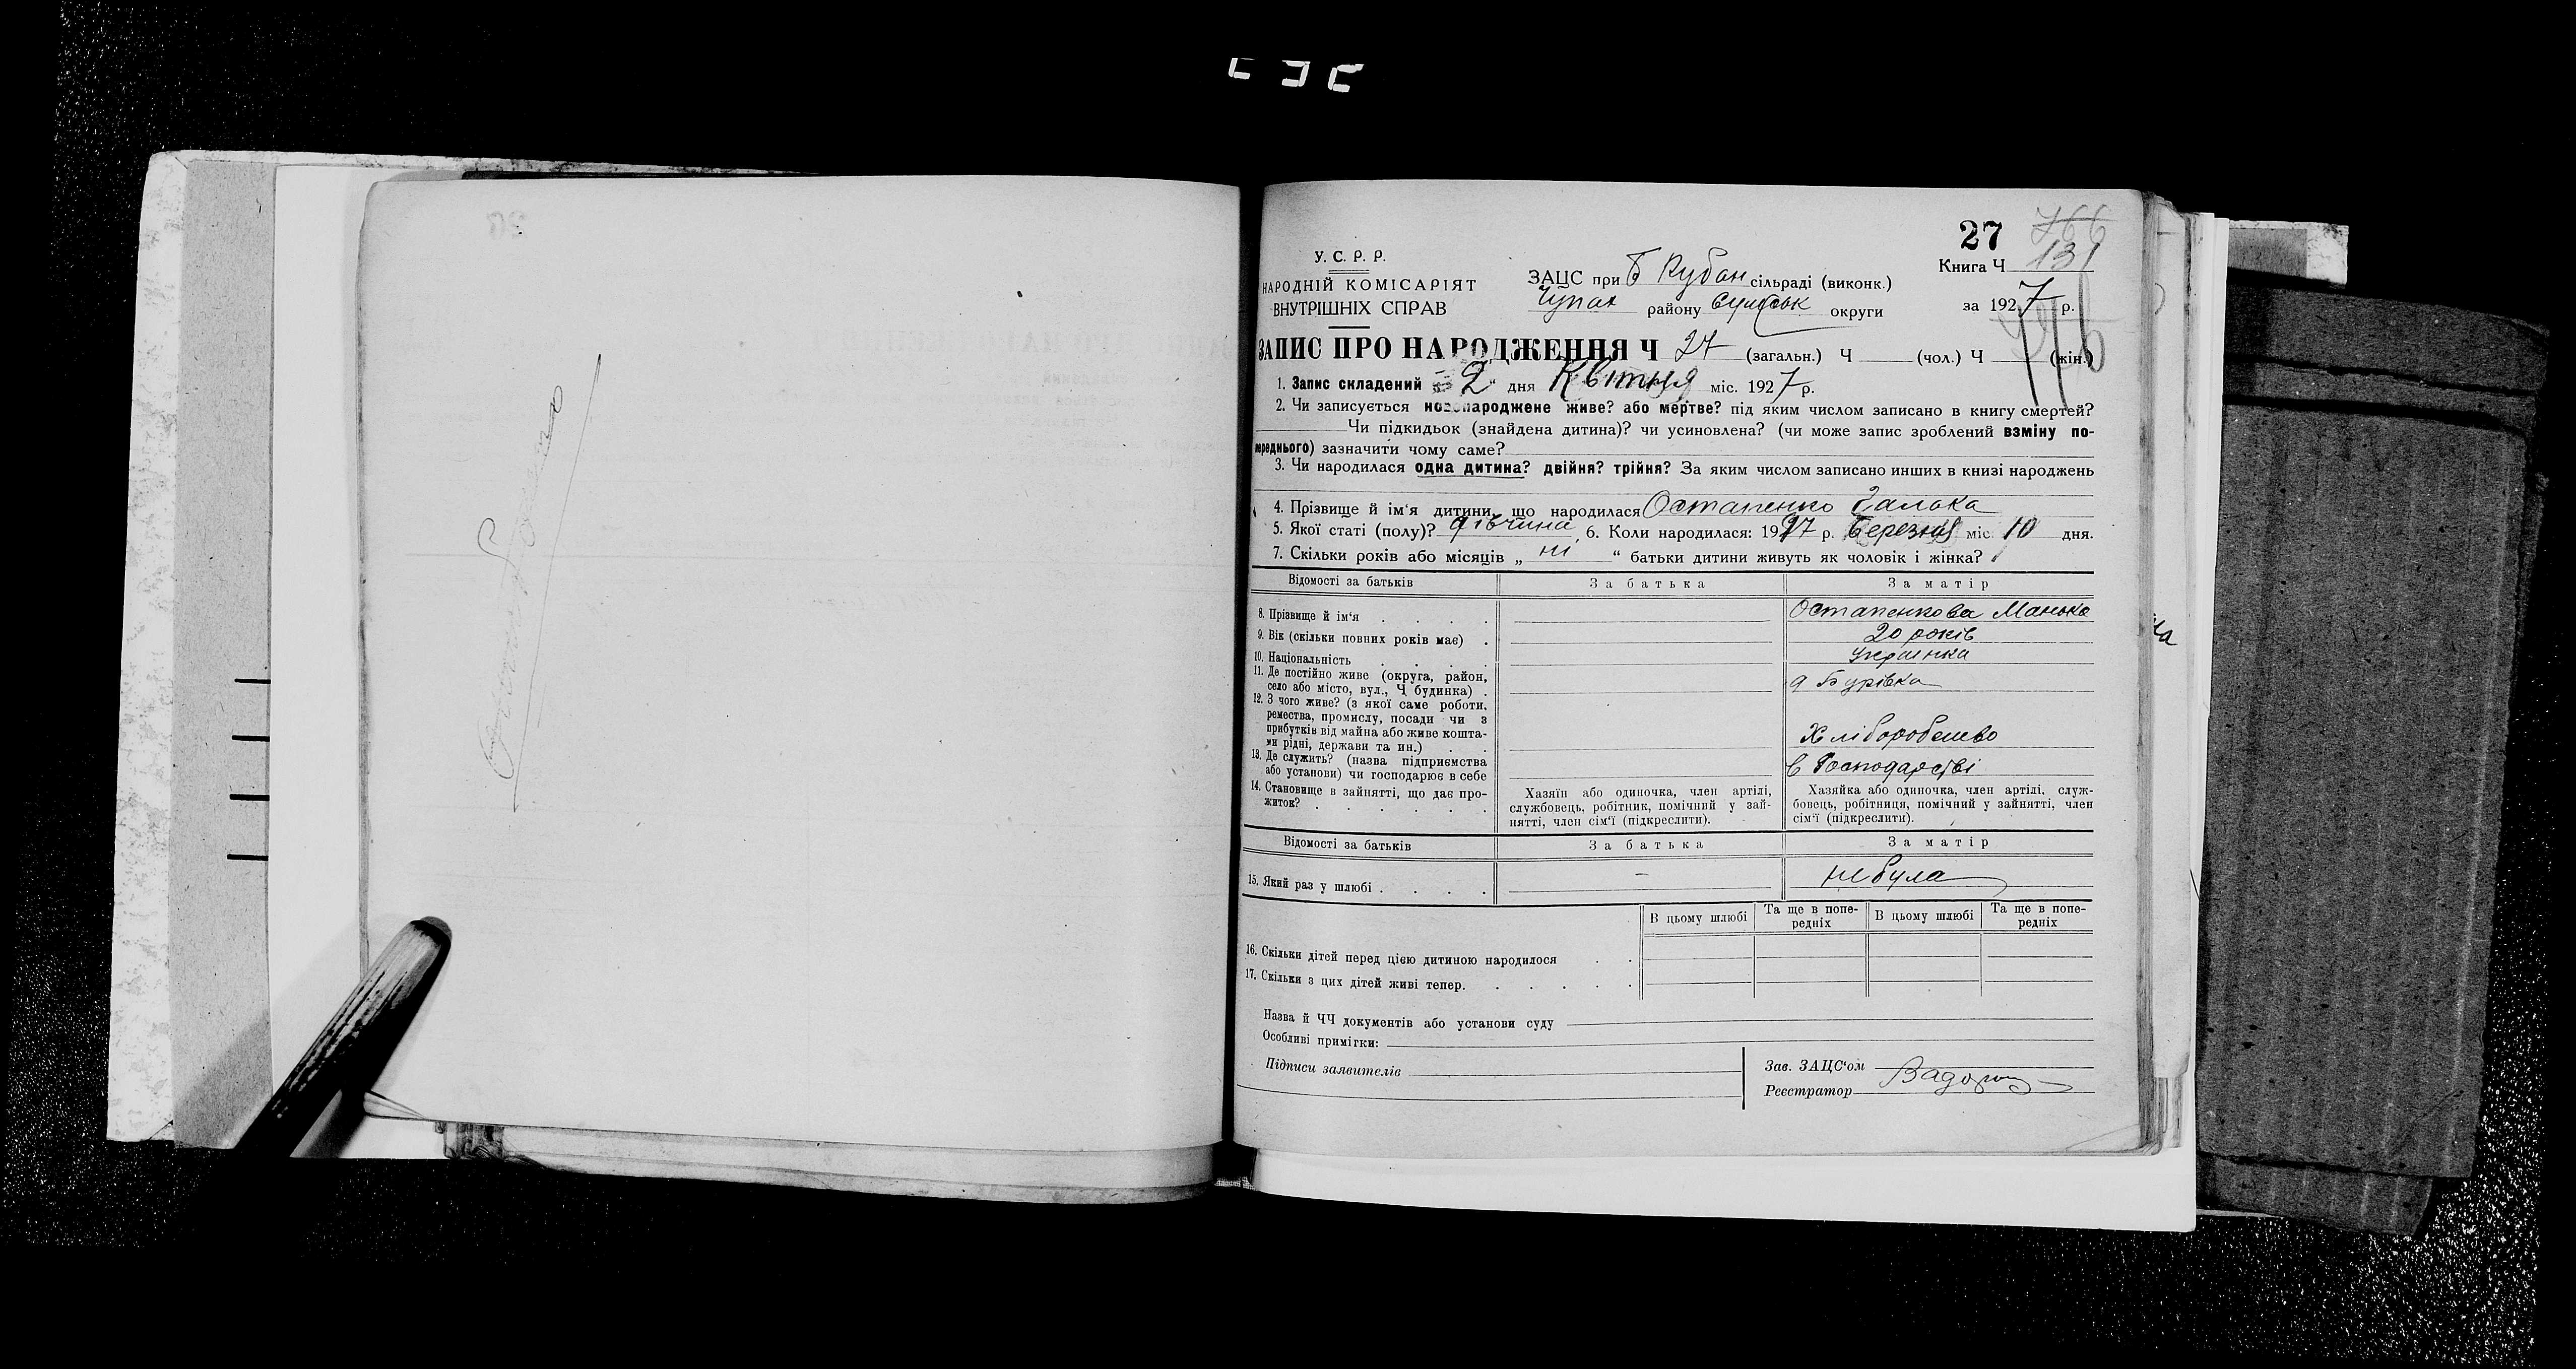 27 766
У. С. Р. Р.
НАРОДНІЙ КОМІСАРІЯТ
ВНУТРІШНІХ СПРАВ
ЗАЦС при Б Кубан сільраді (виконк.)
Чупах району Сумськ округи
Книга Ч 131
за 1927 р.
ЗАПИС ПРО НАРОДЖЕННЯ Ч 27 (загальн.) Ч (чол.) Ч (жін.)
1. Запис складений 2 " дня Квітня міс. 1927 р.
2. Чи записується новонароджене живе? або мертве? під яким числом записано в книгу смертей?
Чи підкидьок (знайдена дитина)? чи усиновлена? (чи може запис зроблений взміну по-
переднього) зазначити чому саме?
3. Чи народилася одна дитина? двійня? трійня? За яким числом записано инших в книзі народжень
4. Прізвище й ім'я дитини, що народилася Остапенко Галька
5. Якої статі (полу)? дівчина 6. Коли народилася: 1927 р. Березня міс 10 дня.
7. Скільки років або місяців „ ні “ батьки дитини живуть як чоловік і жінка?
Відомості за батьків За батька За матір
8. Прізвище й ім'я . . . . Остапенкова Манька
9. Вік (скільки повних років має) . 20 років
10. Національність . . . . Українка
11. Де постійно живе (округа, район,
село або місто, вул., Ч будинка) . д Бурівка
12. З чого живе? (з якої саме роботи,
ремества, промислу, посади чи з
прибутків від майна або живе кошта-
ми рідні, держави та ин.) . . Хліборобство
13. Де служить? (назва підприємства
або установи) чи господарює в себе в Господарстві
14. Становище в зайнятті, що дає про-
житок? . . . . . .
Хазяїн або одиночка, член артілі,
службовець, робітник, помічний у зай-
нятті, член сім'ї (підкреслити).
Хазяйка або одиночка, член артілі, служ-
бовець, робітниця, помічний у зайнятті, член
сім'ї (підкреслити).
Відомості за батьків За батька За матір
15. Який раз у шлюбі . . . . – не була
В цьому шлюбі Та ще в попе-
редніх В цьому шлюбі Та ще в попе-
редніх
16. Скільки дітей перед цією дитиною народилося . .
17. Скільки з цих дітей живі тепер. . . . . .
Назва й ЧЧ документів або установи суду
Особливі примітки:
Підписи заявителів
Зав. ЗАЦС'ом
Реєстратор